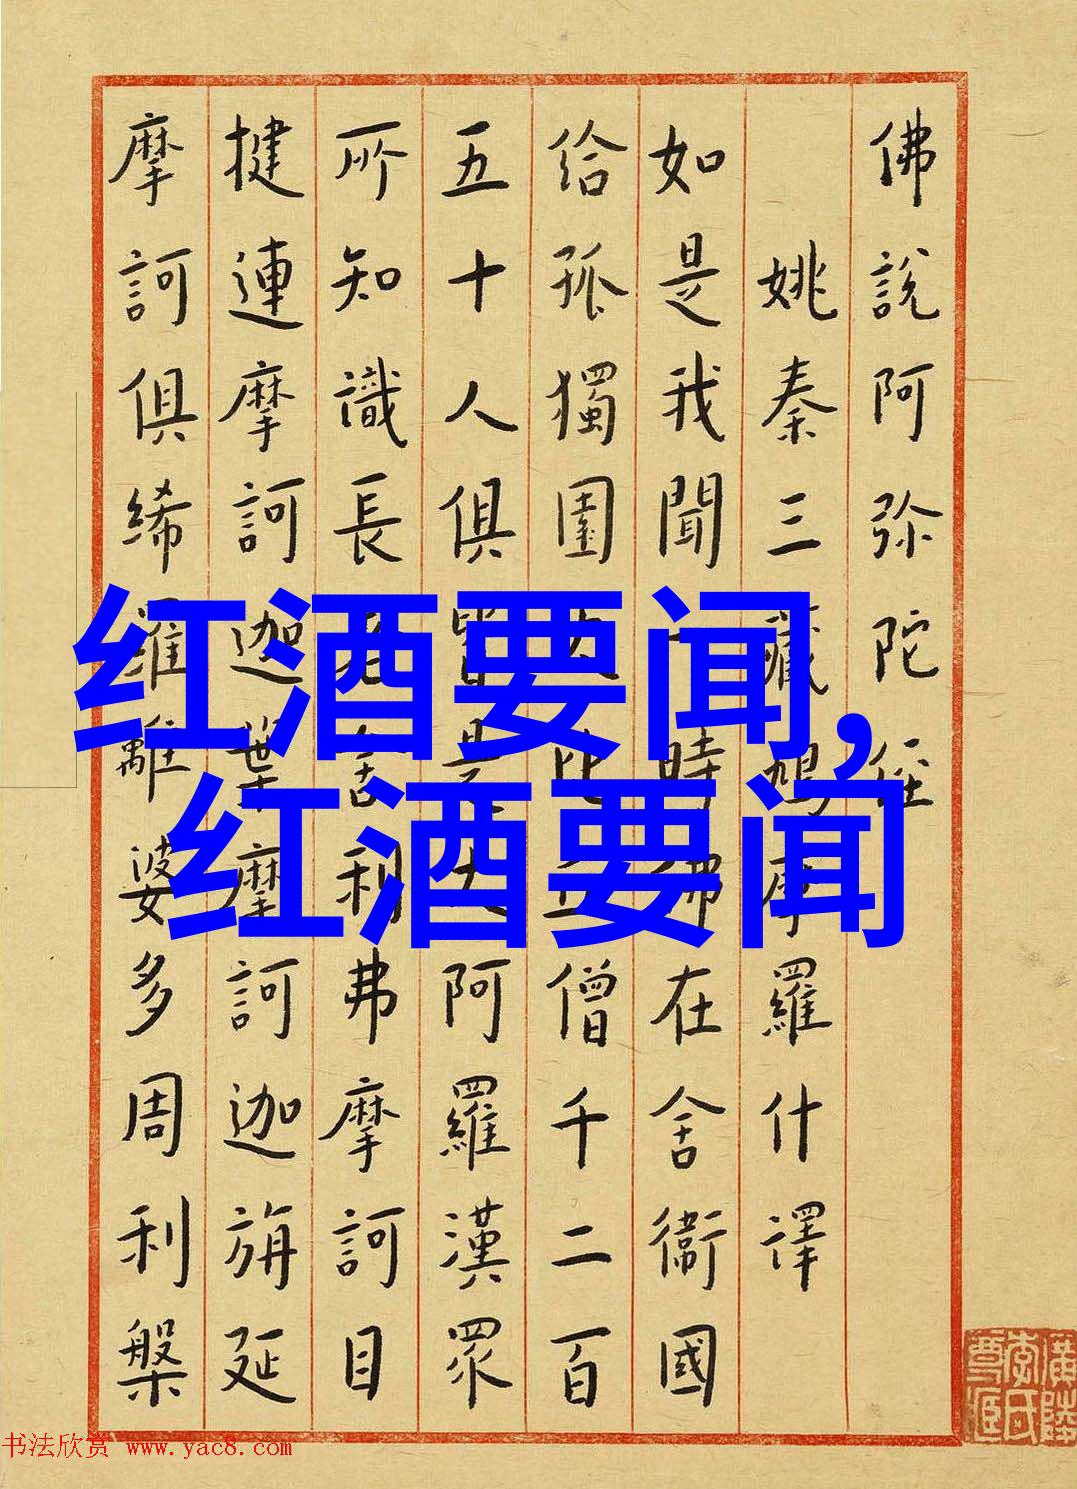 佛說阿弥陀經
姚秦三藏鳩摩羅什譯
如是我聞一時佛在舍衞國
給孤獨園大比丘僧千二百
五十人俱皆是大阿羅漢眾
所知識長老舍利弗摩訶目
揵連摩訶迦葉摩訶迦旃延
摩訶俱絺羅離婆多周利槃
红酒要闻,
红酒要闻
书法欣赏 www.yac8.com